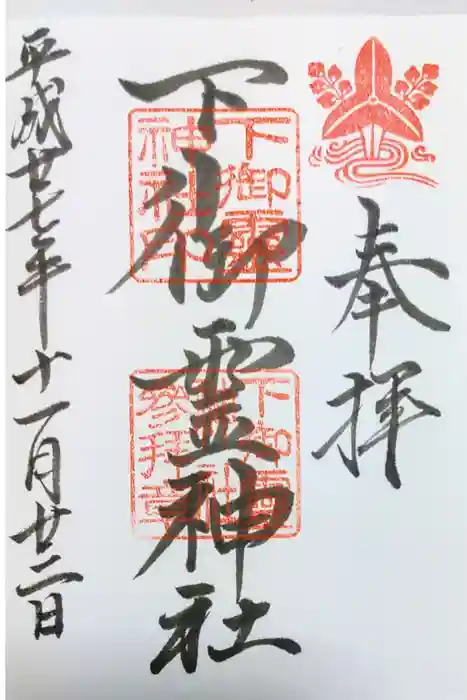 奉拝
下御霊神社
下御霊神社印
下御霊社参拝章
平成廿七年十一月廿二日